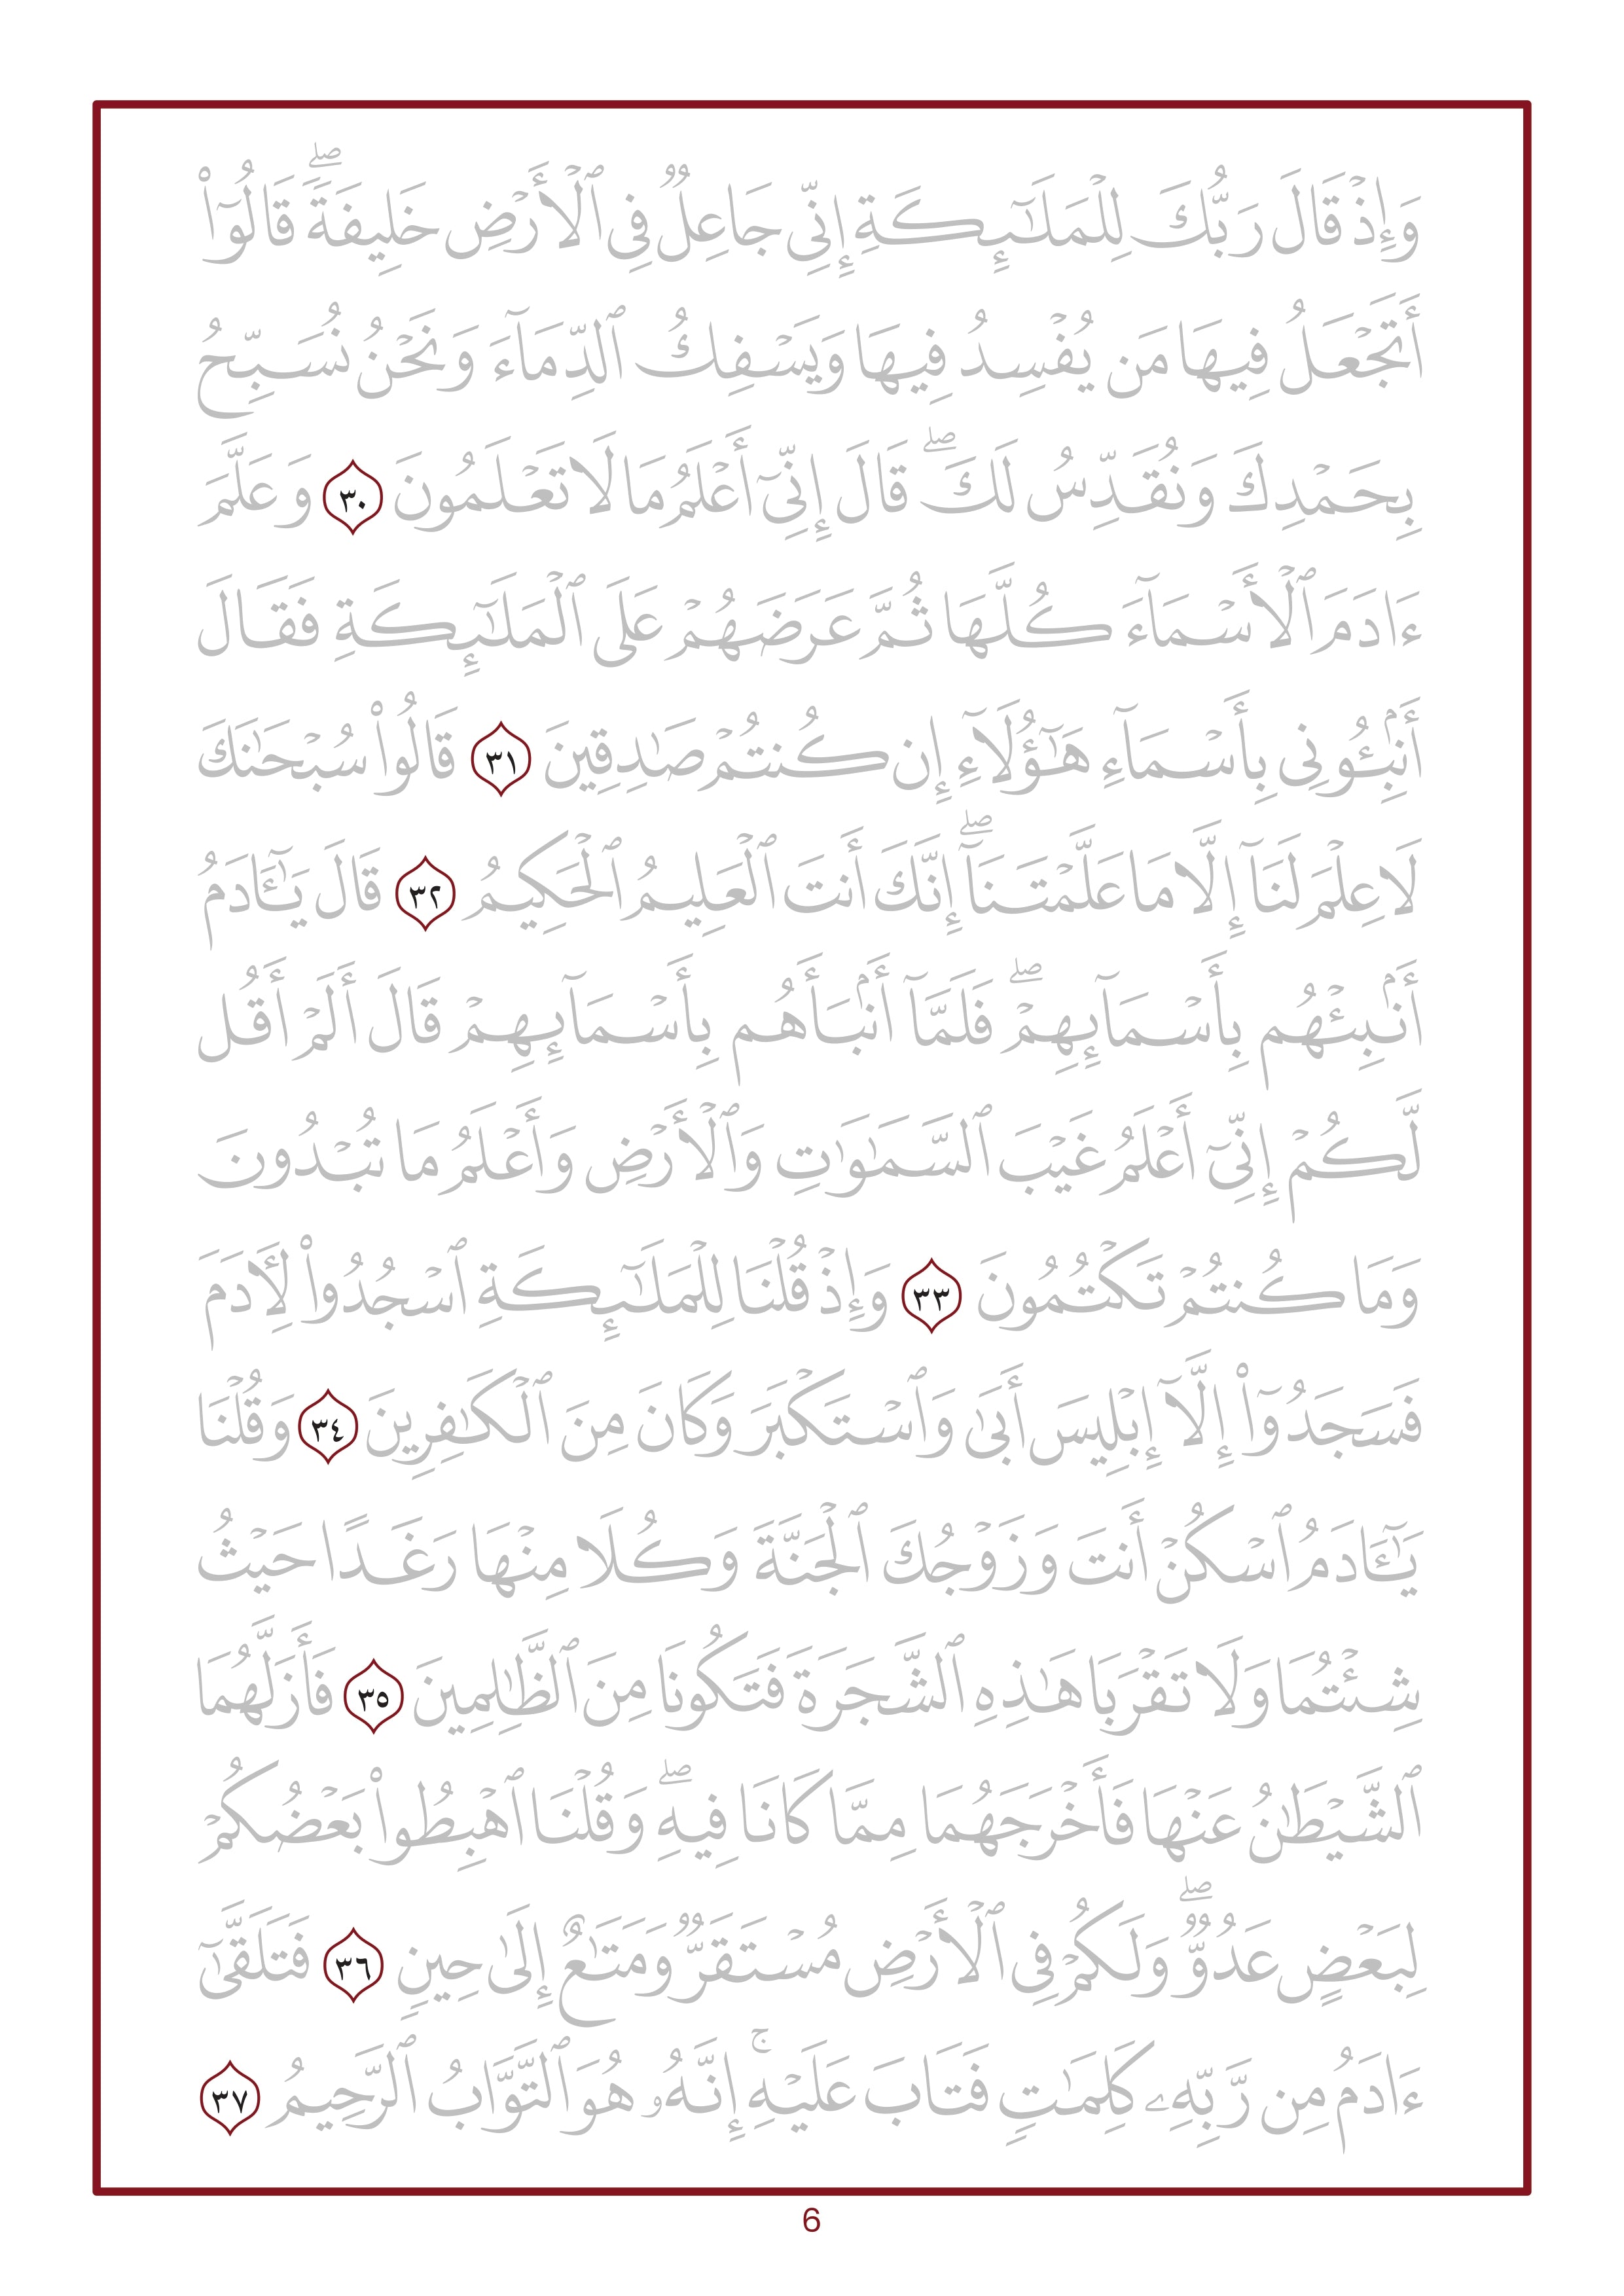 وَإِذۡ قَالَ رَبُّكَ لِلۡمَلَـٰٓئِكَةِ إِنِّي جَاعِلٞ فِي ٱلۡأَرۡضِ خَلِيفَةٗۖ قَالُوٓاْ
أَتَجۡعَلُ فِيهَا مَن يُفۡسِدُ فِيهَا وَيَسۡفِكُ ٱلدِّمَآءَ وَنَحۡنُ نُسَبِّحُ
بِحَمۡدِكَ وَنُقَدِّسُ لَكَۖ قَالَ إِنِّيٓ أَعۡلَمُ مَا لَا تَعۡلَمُونَ ٣٠ وَعَلَّمَ
ءَادَمَ ٱلۡأَسۡمَآءَ كُلَّهَا ثُمَّ عَرَضَهُمۡ عَلَى ٱلۡمَلَـٰٓئِكَةِ فَقَالَ
أَنۢبِـُٔونِي بِأَسۡمَآءِ هَـٰٓؤُلَآءِ إِن كُنتُمۡ صَٰدِقِينَ ٣١ قَالُواْ سُبۡحَٰنَكَ
لَا عِلۡمَ لَنَآ إِلَّا مَا عَلَّمۡتَنَآۖ إِنَّكَ أَنتَ ٱلۡعَلِيمُ ٱلۡحَكِيمُ ٣٢ قَالَ يَـٰٓـَٔادَمُ
أَنۢبِئۡهُم بِأَسۡمَآئِهِمۡۖ فَلَمَّآ أَنۢبَأَهُم بِأَسۡمَآئِهِمۡ قَالَ أَلَمۡ أَقُل
لَّكُمۡ إِنِّيٓ أَعۡلَمُ غَيۡبَ ٱلسَّمَٰوَٰتِ وَٱلۡأَرۡضِ وَأَعۡلَمُ مَا تُبۡدُونَ
وَمَا كُنتُمۡ تَكۡتُمُونَ ٣٣ وَإِذۡ قُلۡنَا لِلۡمَلَـٰٓئِكَةِ ٱسۡجُدُواْ لِأٓدَمَ
فَسَجَدُوٓاْ إِلَّآ إِبۡلِيسَ أَبَىٰ وَٱسۡتَكۡبَرَ وَكَانَ مِنَ ٱلۡكَٰفِرِينَ ٣٤ وَقُلۡنَا
يَـٰٓـَٔادَمُ ٱسۡكُنۡ أَنتَ وَزَوۡجُكَ ٱلۡجَنَّةَ وَكُلَا مِنۡهَا رَغَدًا حَيۡثُ
شِئۡتُمَا وَلَا تَقۡرَبَا هَٰذِهِ ٱلشَّجَرَةَ فَتَكُونَا مِنَ ٱلظَّٰلِمِينَ ٣٥ فَأَزَلَّهُمَا
ٱلشَّيۡطَٰنُ عَنۡهَا فَأَخۡرَجَهُمَا مِمَّا كَانَا فِيهِۖ وَقُلۡنَا ٱهۡبِطُواْ بَعۡضُكُمۡ
لِبَعۡضٍ عَدُوّٞۖ وَلَكُمۡ فِي ٱلۡأَرۡضِ مُسۡتَقَرّٞ وَمَتَٰعٌ إِلَىٰ حِينٖ ٣٦ فَتَلَقَّىٰٓ
ءَادَمُ مِن رَّبِّهِۦ كَلِمَٰتٖ فَتَابَ عَلَيۡهِۚ إِنَّهُۥ هُوَ ٱلتَّوَّابُ ٱلرَّحِيمُ ٣٧
6